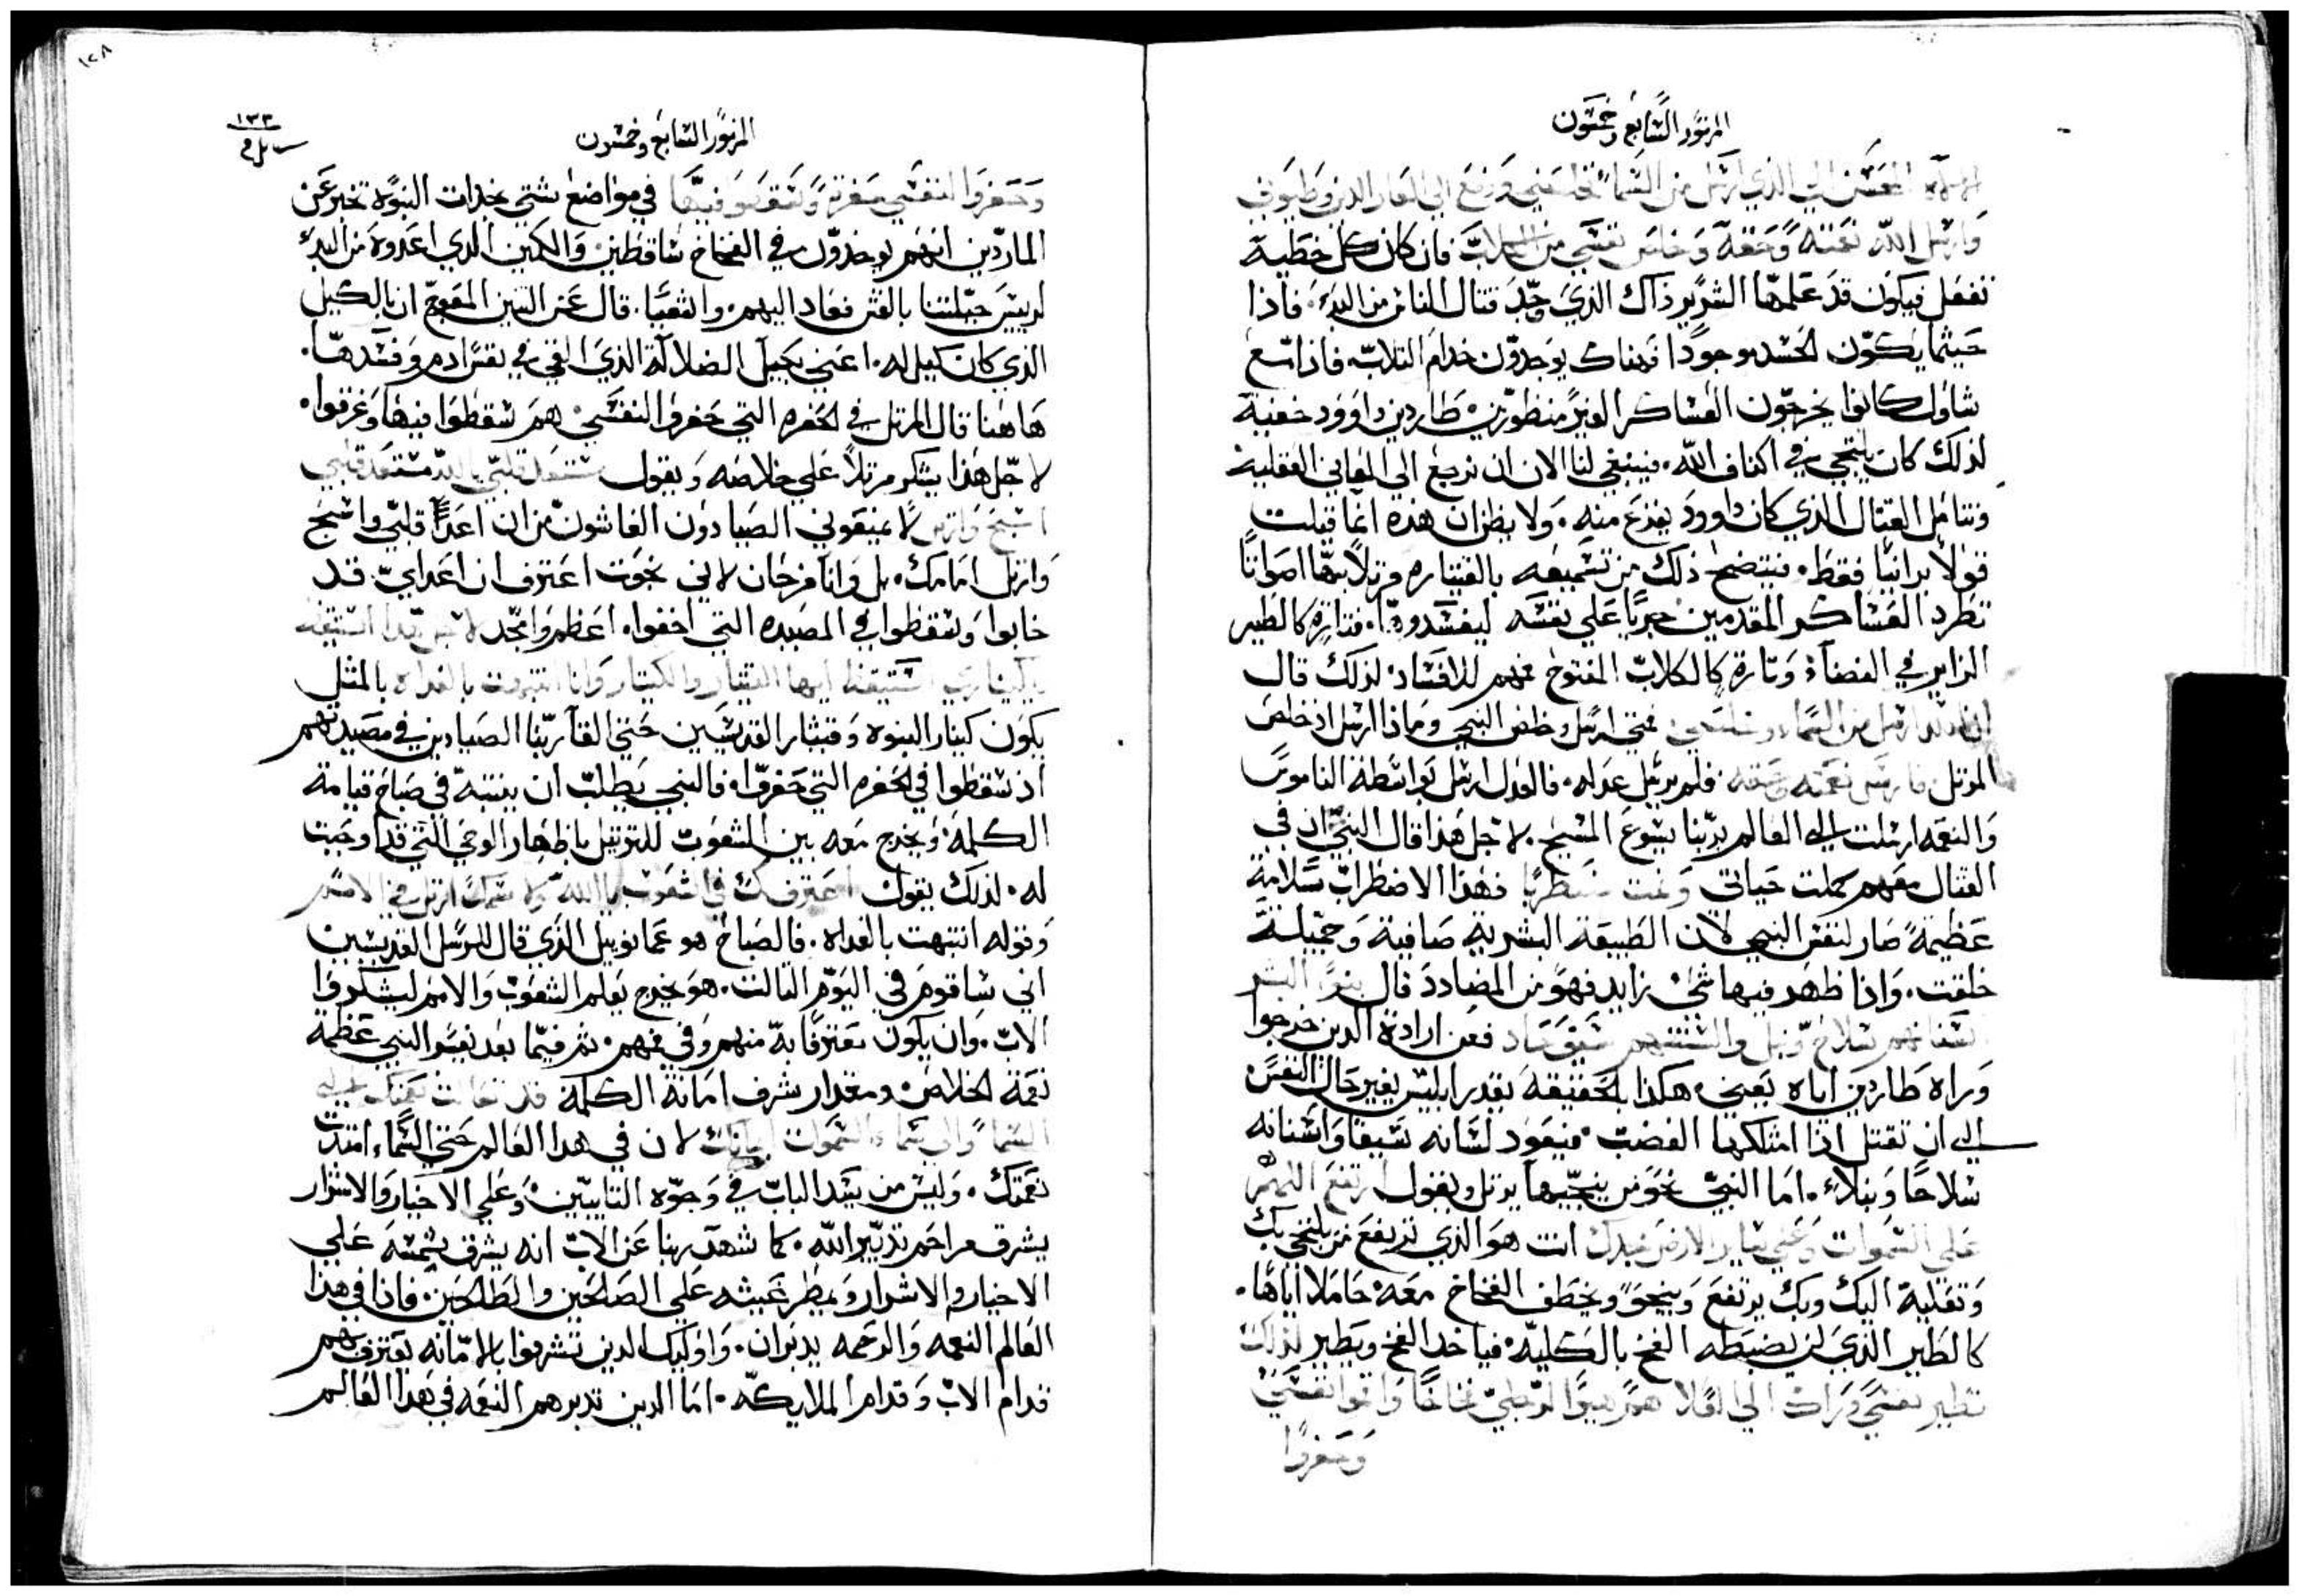 المزمور السابع وخمسون
الذي ارسل من السما فخلصني
وارسل الله نعمته وحقه وخلص نفسي من فان كان كل خطية
تفعل فيكون قد علمها الشرير ذاك الذي وجد قتال الناس من البدء. فاذا
حيثما يكون الحسد موجودا فهناك يوجدون خدام الثلاب. فاذا تبع
شاول كانوا يخرجون العساكر الغير منظورين طاردين داوود خفية
لذلك كان يلتجي في اكناف الله. فينبغي لنا الان ان نرجع الي المعاني العقلية
ونتامل القتال الذي كان داوود يفزع منه. ولا يظن ان هذه انما قيلت
قولا برانيا فقط. فيتضح ذلك من تشميعه بالقيتاره مرتلا بها اصواتا
تطرد العساكر المقدمين حربا علي نفسه ليفسدوها. فتارة كالطير
الزاير في الفضاء وتارة كالكلاب المفتوح فمهم للافساد. لذلك قال
ان الله ارسل من السماء وخلصني فمتي ارسل وخلص النبي وماذا ارسل اذ خلص
المرتل فارسل نعمته وحقه فلم يرسل عدله. فالعدل ارسل بواسطة الناموس
والنعمه ارسلت الي العالم بربنا يسوع المسيح. لاجل هذا قال النبي ان في
القتال معهم كملت حياتي ونمت مضطربا فهذا الاضطراب سلامة
عظيمة صار لنفس النبي لان الطبيعة البشرية صافية وجميلة
خلقت. واذا ظهر فيها شي زايد فهو من المضادد قال بنوا البشر
اسنانهم سلاح ونبل والسنتهم سيف حاد فعن ارادة الدين خرجوا
وراه طاردين اياه يعني. هكذا بالحقيقه يقدر ابليس يغير حال النفس
الي ان تقتل اذا امتلكها الغضب. فيعود لسانه سيفا واسنانه
سلاحا ونبلاء. اما النبي نحو من ينجيها يرتل ويقول ارتفع اللهم
علي السموات وعلي ساير الارض مجدك انت هو الذي ترتفع من يلتجي بك
وتقلبه اليك وبك يرتفع وينجو ويخطف الفخاخ معه حاملا اياها.
كالطير الذي لن يضبطه الفخ بالكلية. فياخد الفخ ويطير لذلك
تطير نفسي الي العلا هم هيوا لرجلي فخاخا واحنوا نفسي
وحفروا
١٢٨
١٣٣
المزمور السابع وخمسون
وحفروا لنفسي حفرة وسقطوا فيها في مواضع شتي نجدات النبوة تخبر عن
الماردين انهم يوخدون في الفخاخ ساقطين والكمين الذي اعدوه من البدء
لرييس جبلتنا بالغش فعاد اليهم. واشعيا. قال عن التنين المعوج ان بالكيل
الذي كان كيل له. اعني بحبل الضلالة الذي القي في نفس ادم وفسدها.
هاهنا قال المرتل في الحفره التي حفروا لنفسي هم سقطوا فيها وغرقوا.
لاجل هذا يشكر مرتلا علي خلاصه ويقول مستعد قلبي يا الله مستعد قلبي
اسبح وارتل لا يمنعوني الصيادون الغاشون من ان اعدا قلبي واسبح
وارتل امامك. بل وانا فرحان لاني نجوت اعترف ان اعداي قد
خابوا وسقطوا في المصيده التي اخفوا. اعظم وامجد
استيقظ ايها القيثار والكينار وانا انتبهت بالغداه بالمثل
يكون كينار النبوه وقيثار القديسين حتي القا ربنا الصيادين في مصيدتهم
اذ سقطوا في الحفره التي حفروا. فالنبي يطلب ان ينتبه في صباح قيامة
الكلمة ويخرج معه بين الشعوب للترتيل باظهار الوحي التي قد اوجبت
له. لذلك يقول اعترف لك في الشعوب يا الله ولاسمك ارتل في الامم
وقوله انتبهت بالغداه. فالصباح هو عمانوييل الذي قال للرسل القديسين
اني ساقوم في اليوم الثالت. هو يخرج يعلم الشعوب والامم ليشكروا
الاب. وان يكون معترفا به منهم وفي فمهم. ثم فيما بعد نفس النبي عظمة
نعمة الخلاص ومقدار شرف امانة الكلمة قد تعالت نعمتك الي
السماء والي السموات امانتك لان في هدا العالم حتي السماء امتدت
نعمتك. وليس من يسد الباب في وجوه التايبين. وعلي الاخيار والاشرار
يشرق مراحم تدبير الله. كما شهد ربنا عن الاب انه يشرق شمسه علي
الاخيار والاشرار ويمطر غيثه علي الصالحين والطالحين. فاذا في هذا
العالم النعمه والرحمه يدبران. واوليك الدين تشرفوا بالامانه يعترف بهم
قدام الاب وقدام الملايكه. اما الدين تدبرهم النعمه في هدا العالم